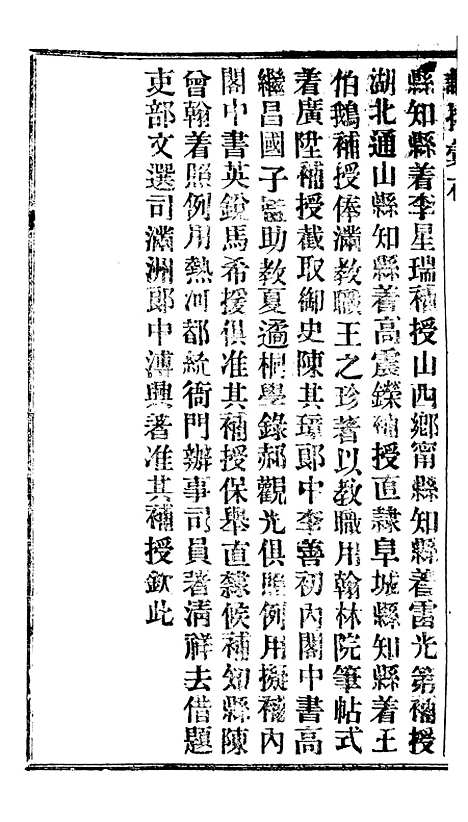 縣知縣着李星瑞補授山西鄉甯縣知縣着雷光第補授
湖北通山縣知縣着高震鑅補授直隸阜城縣知縣着王
伯鵝補授俸滿教職王之珍著以教職用翰林院筆帖式
着廣陞補授截取御史陳其璋郎中李善初內閣中書高
繼昌國子監助教夏遹桐學錄郝觀光俱照例用擬補內
閣中書英銳馬希援俱准其補授保舉直隸候補知縣陳
曾翰着照例用熱河都統衙門辦事司員著清祥去借題
吏部文選司滿洲郎中溥興著准其補授欽此